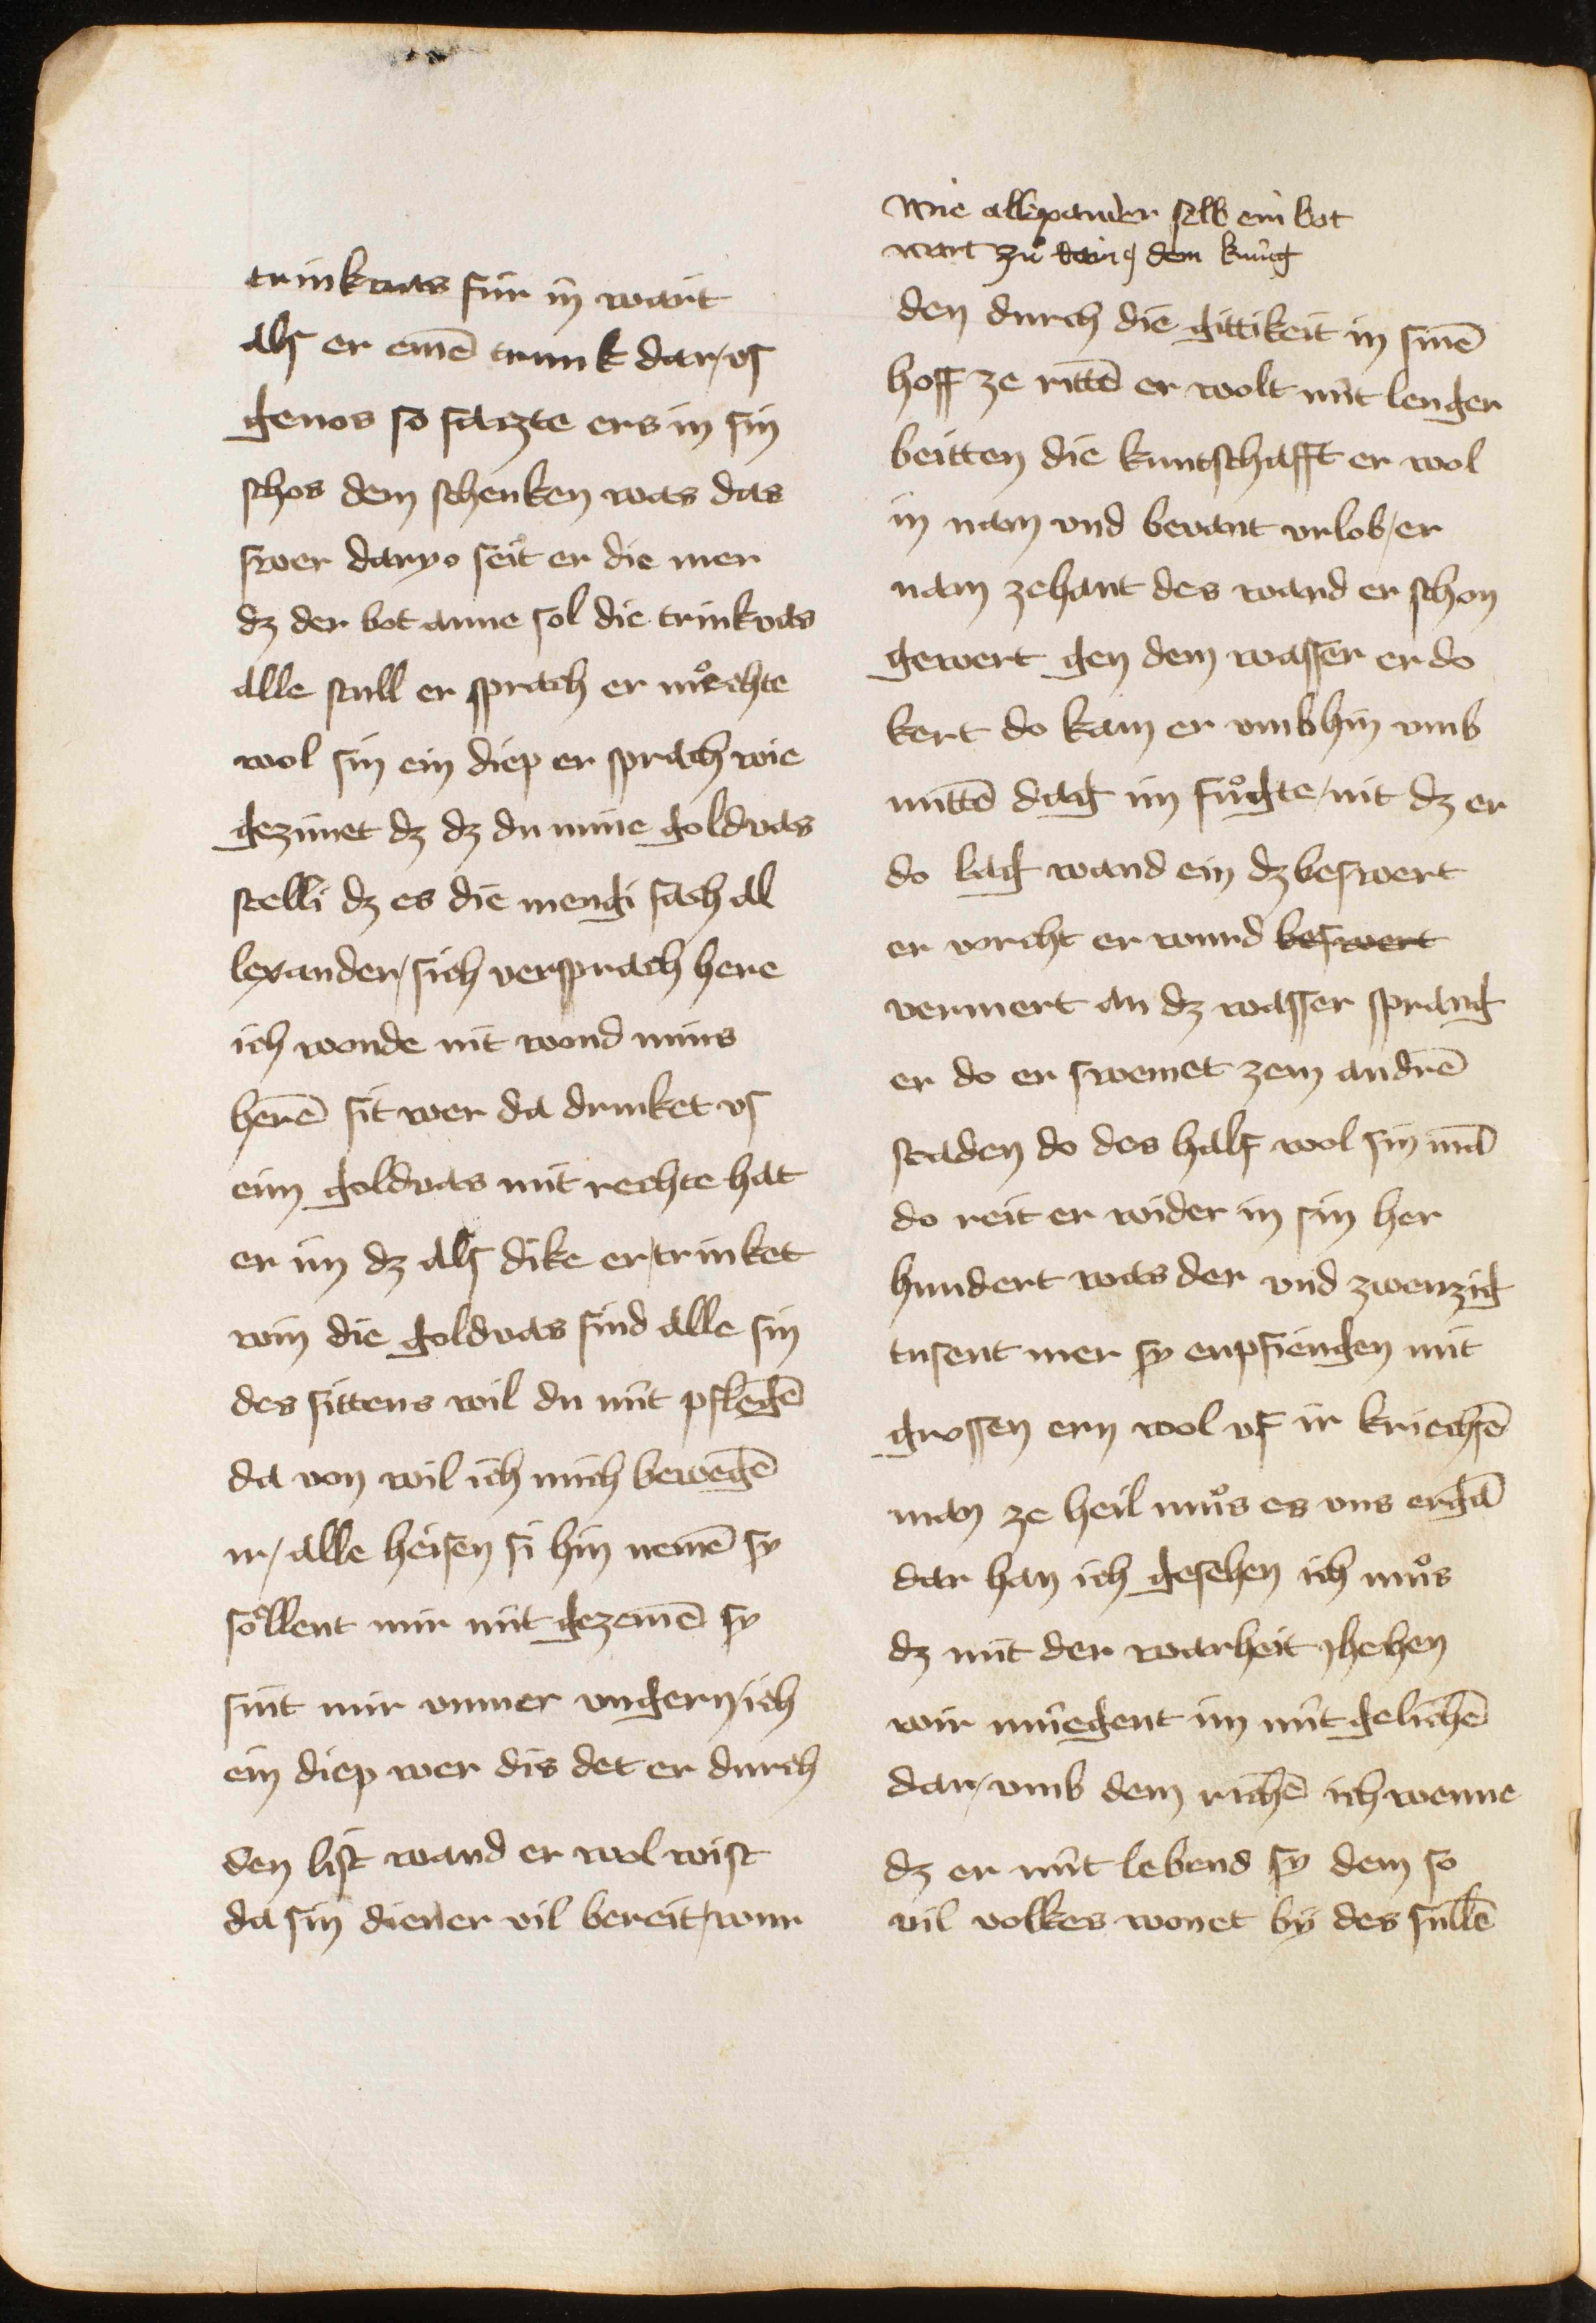 trinkvas für in wart
als er eine͂ trunk dar vs
genos so sazte ers in sin
schos dem schenken was das
swer daryo seit er die mer
dz der bot anne sol die trinkvas
alle stull er sprach er moͤchte
wol sin ein diep er sprach wie
gezimet dz dz du mine goldvas
stelli dz es die mengi sach al
lexander sich versprach here
ich wonde nit wond mins
here͂ sit wer da drinket vs
eim goldvas mit rechte hat
er im dz als dike er trinket
win die goldvas sind alle sin
des sittens wil du nüt pflege͂
da von wil ich mich bewege͂
ir alle heisen si hin neme͂ sy
söllent mir nüt gezeme͂ sy
sint mir vnmer vngern ich
ein diep wer dis det er durch
den list wand er wol wist
da sin diener vil bereit wur
Wie allexander selb ein bot
wart zuͦ dariꝯ dem künig
den durch die gittikeit in sine͂
hoff ze ritte͂ er wolt nüt lenger
beitten die kuntschafft er wol
in nam vnd bevant vrlob er
nam zehant des ward er schon
gewert gen dem wasser er do
kert do kam er vmbhin vmb
mitte͂ dag im fuͦgte nit dz er
do lag wand ein dz beswert
er vorcht er wurd beswert
vermert an dz wasser sprang
er do er swemet zem andre͂
staden do des half wol sin ma͂
do reit er wider in sin her
hundert was der vnd zwenzig
tusent mer sy enpfiengen mit
grossen ern wol vf ir krieche͂
man ze heil muͦs es vns erga͂
dar han ich gesehen ich muͦs
dz mit der warheit jhehen
wir müegent im nüt geliche͂
dar vmb dem riche͂ ich wenne
dz er nüt lebend sy dem so
vil volkes wonet by des sülle͂